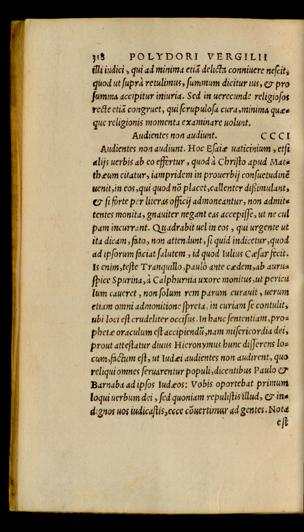 318 POLYDORI VERGILII
illi iudici, qui ad minima etiã delicta connivere nescit,
quod ut suprà retulimus, summum dicitur ius, & pro
summa accipitur iniuria. Sed in uerecunde religiosos
recte etiã congruet, qui scrupulosa cura, minima quæ-
que religionis momenta examinare uolunt.
Audientes non audiunt. CCCI
Audientes non audiunt. Hoc Esaiæ uaticinium, etsi
alijs uerbis ab eo effertur, quod à Christo apud Mat-
thæum citatur, iampridem in prouerbij consuetudinẽ
uenit, in eos, qui quod nõ placet, callenter dißimulant,
& si forte per literas officij admoneantur, non admit-
tentes monita, gnauiter negant eas accepisse, ut ne cul
pam incurrant. Quadrabit uel in eos, qui urgente ut
ita dicam, fato, non attendunt, si quid indicetur, quod
ad ipsorum faciat salutem, id quod Iulius Cæsar fecit.
Is enim, teste Tranquillo, paulò ante cædem, ab auru-
spice Spurina, à Calphurnia uxore monitus, ut pericu
lum caueret, non solum rem parum curauit, uerum
etiam omni admonitione spreta, in curiam se contulit,
ubi loci est crudeliter occisus. In hanc sententiam, pro-
phetæ oraculum est accipiendũ, nam misericordia dei,
prout attestatur diuus Hieronymus hunc disserens lo-
cum, factum est, ut Iudæi audientes non audirent, quo
reliqui omnes seruarentur populi, dicentibus Paulo &
Barnaba ad ipsos Iudæos: Vobis oportebat primum
loqui uerbum dei, sed quoniam repulistis illud, & in-
dignos uos iudicastis, ecce cõuertimur ad gentes. Nota
est